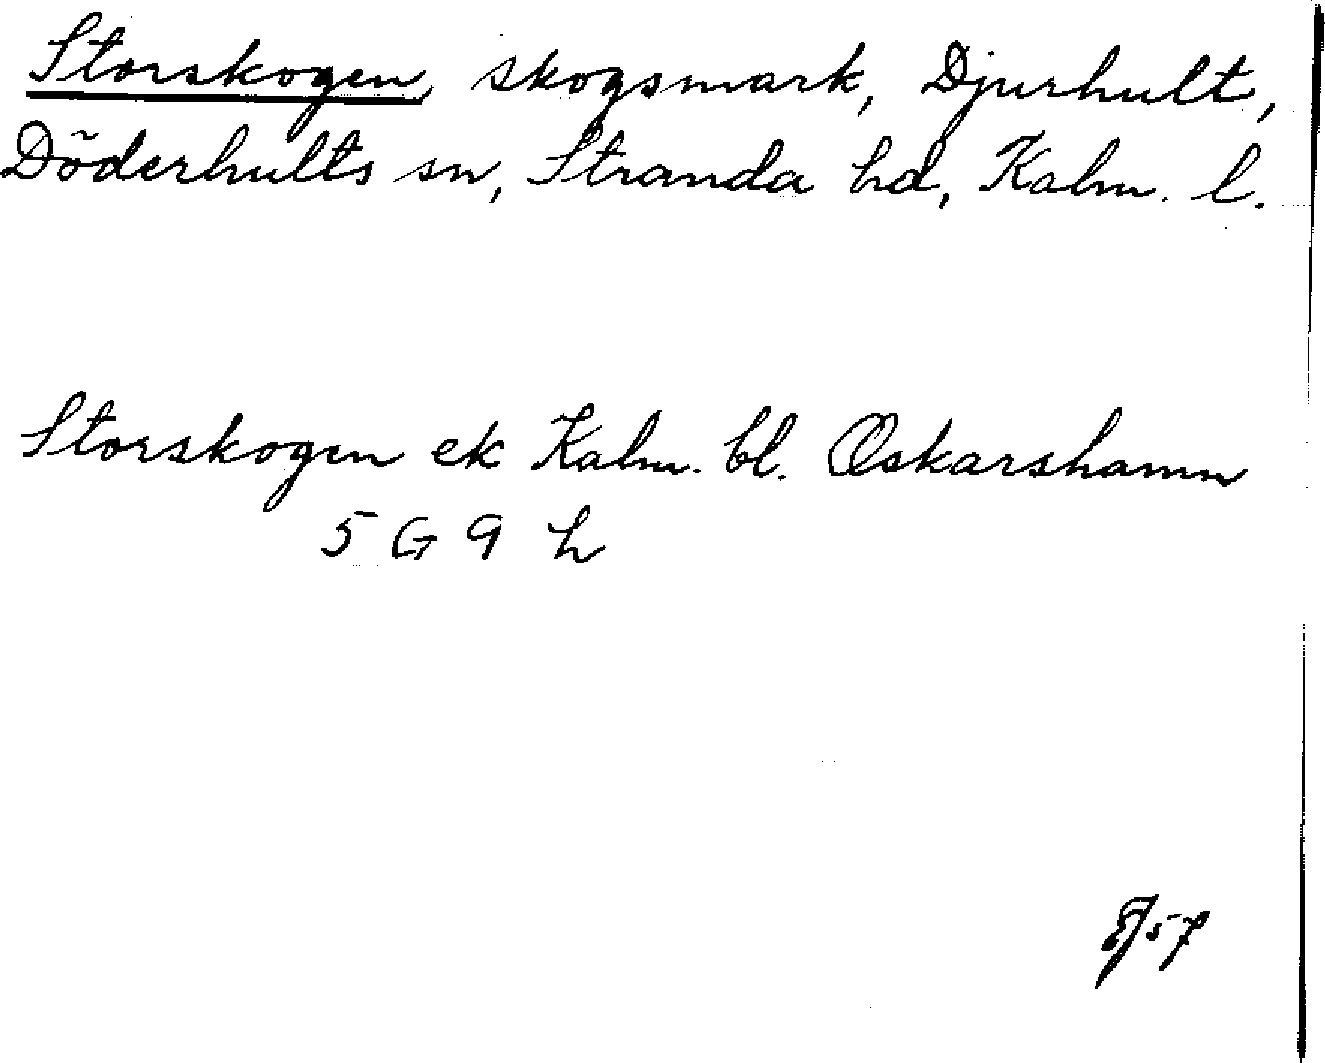 Storskogen, skogsmark, Djurhult,
Döderhults sn, Stranda hd, Kalm. l.
Storskogen ek Kalm. bl. Oskarshamn
5 G 9 h
57